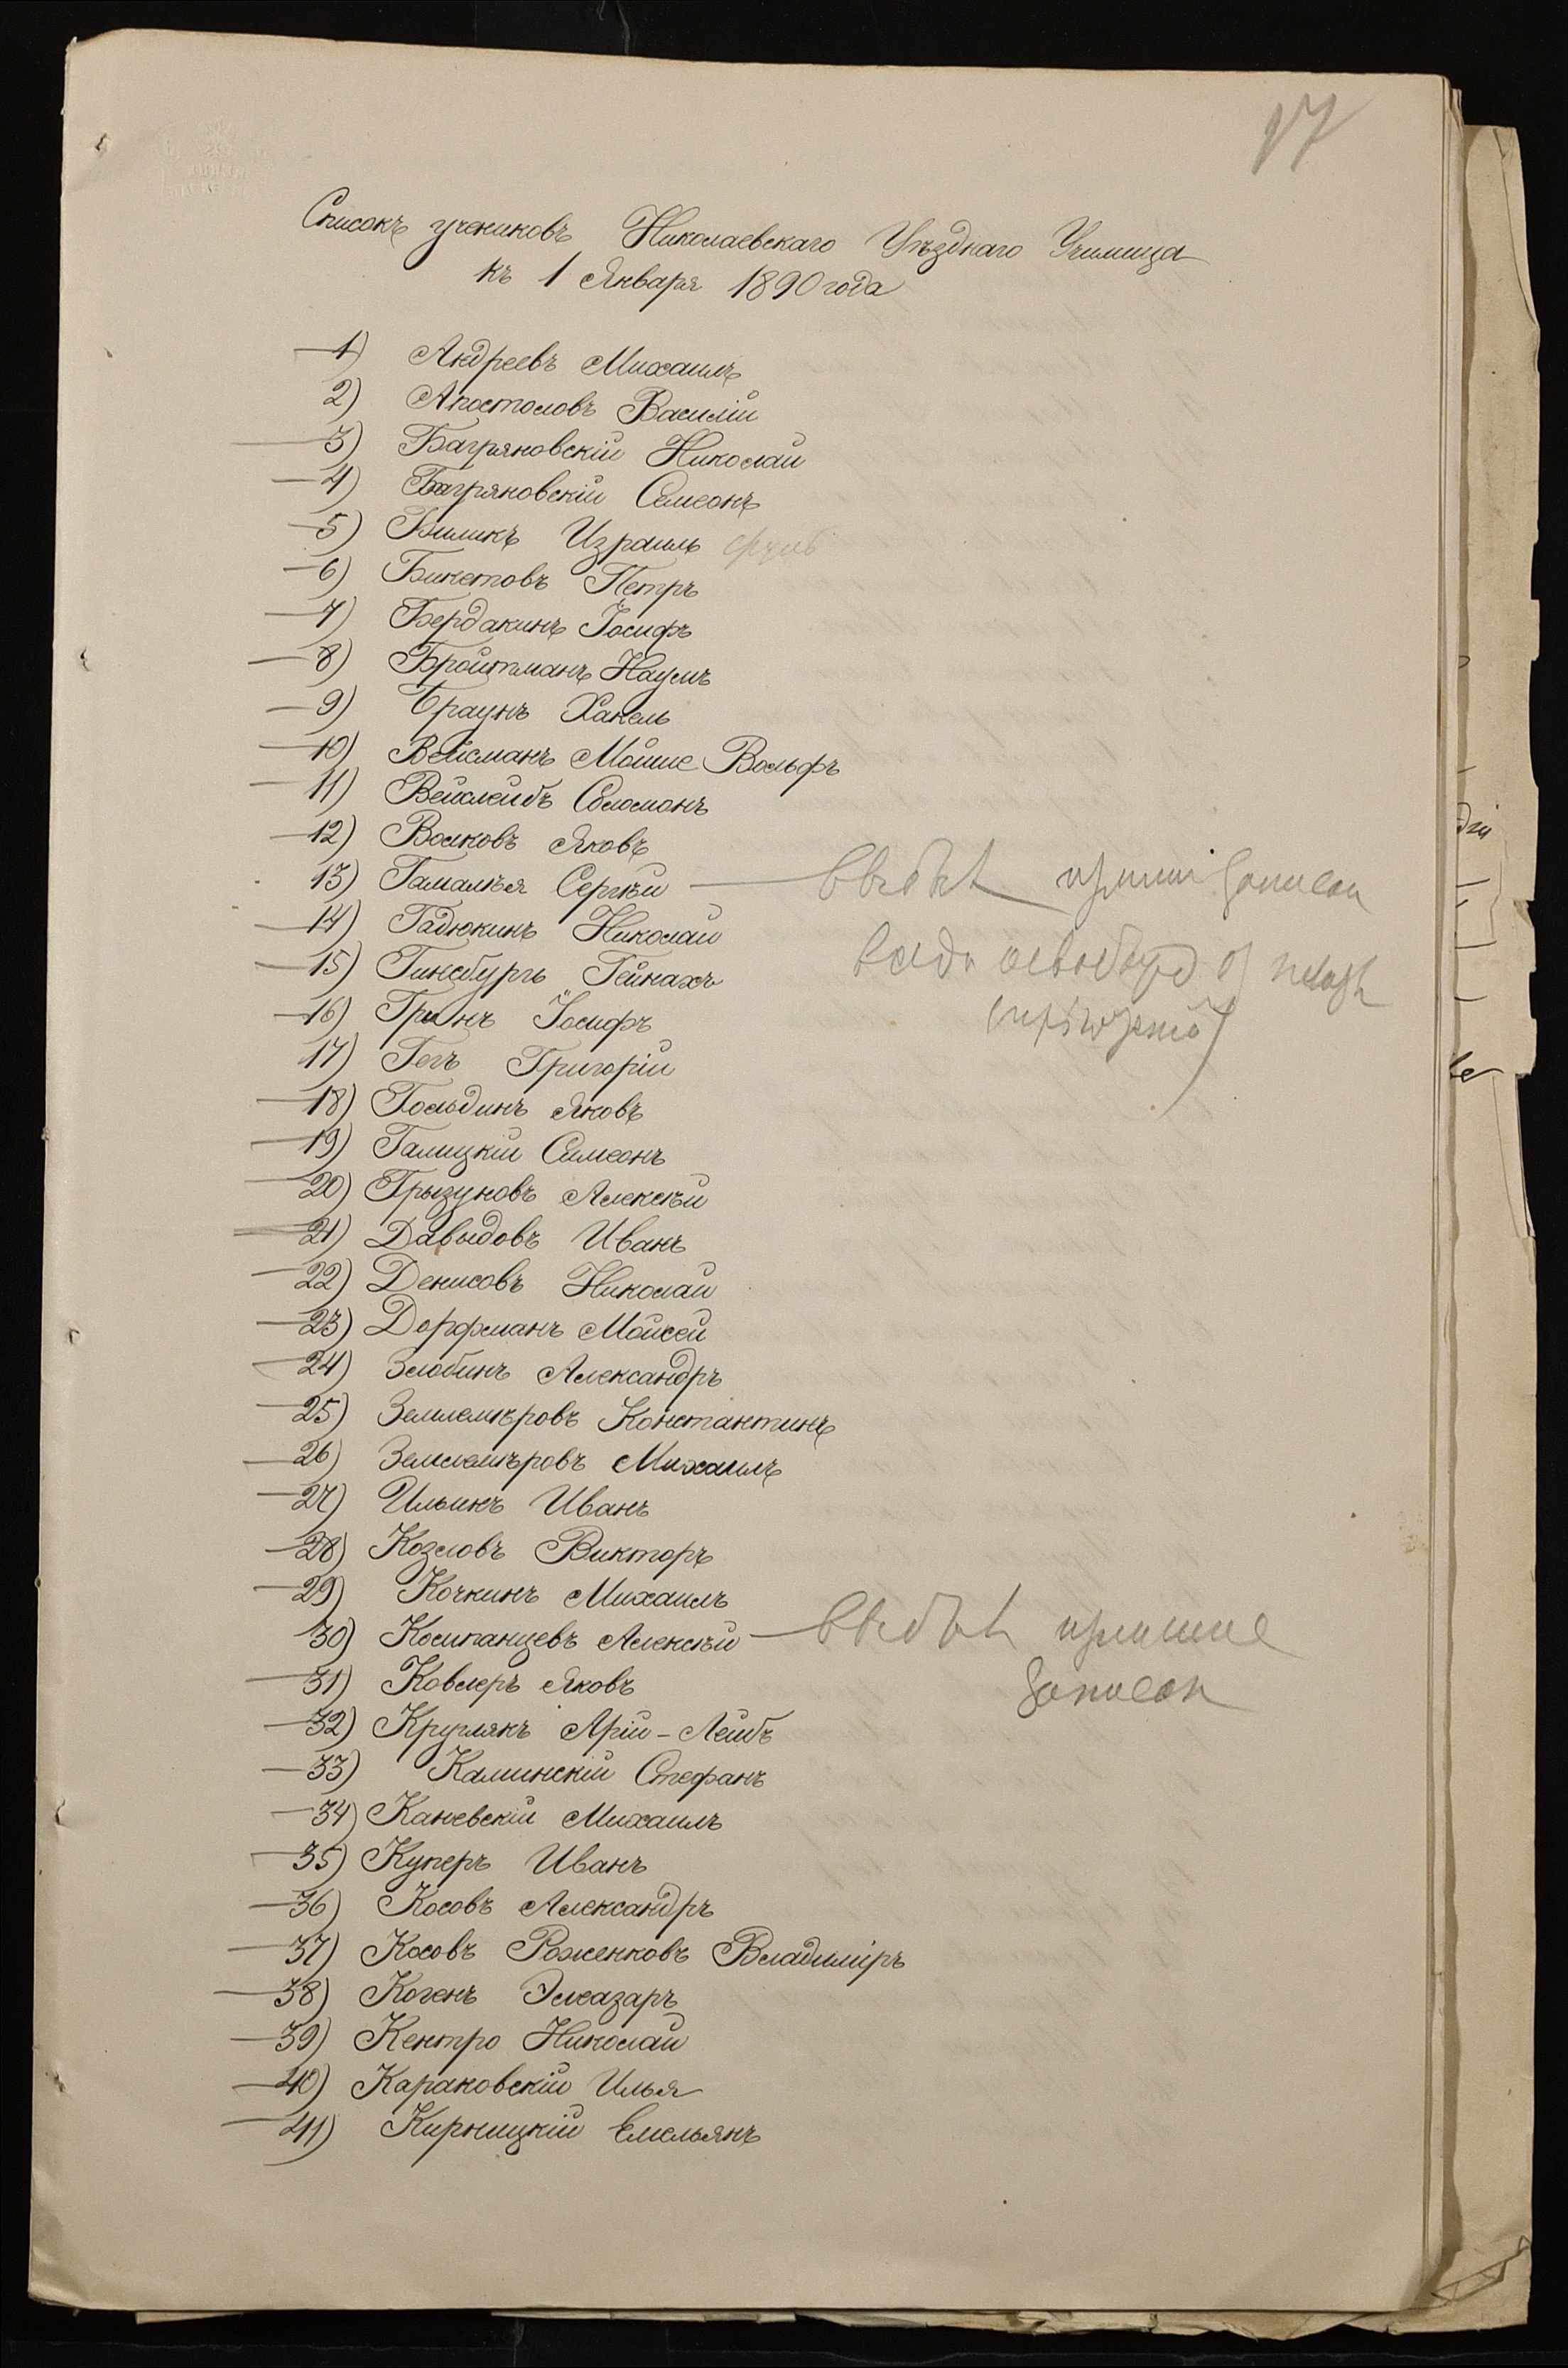 17
Списокъ учениковъ Николаевскаго Уѣзднаго Училища
къ 1 Января 1890 года
1) Андреевъ Михаилъ
2) Апостоловъ Василій
3) Багряновскій Николай
4) Багряновскій Симеонъ
5) Биликъ Израиль
6) Бикетовъ Петръ
7) Бердакинъ Іосифъ
8) Бройтманъ Наумъ
9) Браунъ Ханель
10) Вейсманъ Мойше Вольфъ
11) Вейхлейбъ Соломонъ
12) Волковъ Яковъ
13) Гамалѣя Сергѣй
14) Гадюкинъ Николай
15) Гинсбургъ Гейнахъ
16) Гринъ Іосифъ
17) Гегъ Григорій
18) Гольдинъ Яковъ
19) Галицкій Симеонъ
20) Грызуновъ Алексѣй
21) Давыдовъ Иванъ
22) Денисовъ Николай
23) Дорфманъ Мойсей
24) Злобинъ Александръ
25) Землемѣровъ Константинъ
26) Землемѣровъ Михаилъ
27) Ильинъ Иванъ
28) Козловъ Викторъ
29) Кочкинъ Михаилъ
30) Косипанцевъ Алексѣй
31) Ковлеръ Яковъ
32) Круглякъ Арій-Лейбъ
33) Калинскій Стефанъ
34) Каневскій Михаилъ
35) Куперъ Иванъ
36) Косовъ Александръ
37) Косовъ Роженковъ Владиміръ
38) Когенъ Элеазаръ
39) Кентро Николай
40) Караковскій Илья
41) Кирницкій Емельянъ